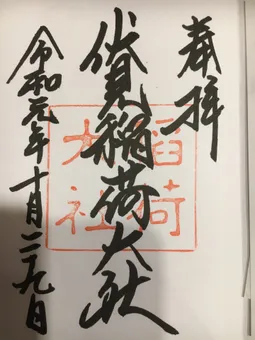 奉拝
伏見稲荷大社
令和元年十月二九日
稲荷
大社